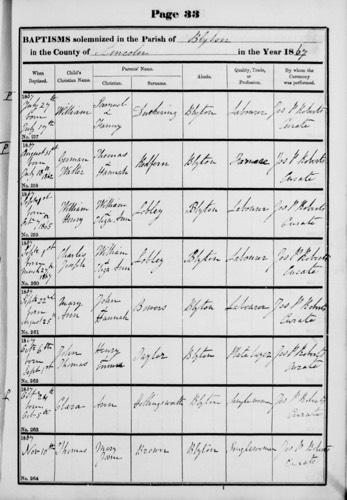 Page 33
BAPTISMS solemnized in the Parish of Blyton
in the County of Lincoln in the Year 1867
When Baptized. Child's Christian Name. Parents' Name. Abode. Quality, Trade, or Profession. By whom the Ceremony was performed.
Christian. Surname.
1867
July 27th
born
July 17th
No. 257
William
Samuel
&
Fanny
Blyton
Labourer
Jos P Roberts
Curate
1867
August 11th
born
July 18th 1862
No. 258
German
Walter
Thomas
&
Hannah
Redfern
Blyton
Jos P Roberts
Curate
1867
Sept 1st
born
1865
No. 259
William
Henry
William
&
Eliza Ann
Lobley
Blyton
Labourer
Jos P Roberts
Curate
1867
Sept 1st
born
March 27th
1867
No. 260
Charles
Joseph
William
&
Eliza Ann
Lobley
Blyton
Labourer
Jos P Roberts
Curate
1867
Sept 22nd
born
August 25
No. 261
Mary
Ann
John
&
Hannah
Bowers
Blyton
Labourer
Jos P Roberts
Curate
1867
Oct 6th
born
Sept
No. 262
John
Thomas
Henry
&
Emma
Taylor
Blyton
Plate layer
Jos P Roberts
Curate
1867
Oct
born
Oct 5th
No. 263
Clara
Ann
Hollingsworth
Blyton
Singlewoman
Jos P Roberts
Curate
1867
Nov 10th
No. 264
Thomas
Mary
Jane
Brown
Blyton
Singlewoman
Jos P Roberts
Curate